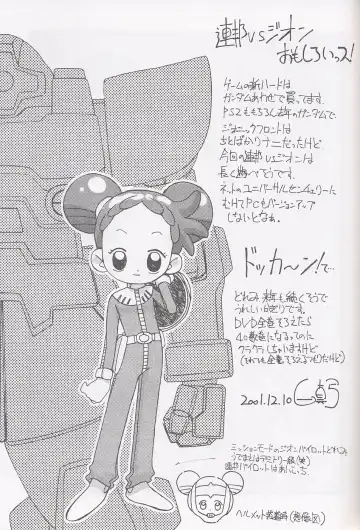 連邦vsジオン
おもしろいっス!
ゲームの新ハードは
ガンダムあわせで買ってます。
PS2ももちろん去年のガンダムで
ジオニックフロントは
ちとばかりナニだったけど
今回の連邦vsジオンは
長く遊べそうです。
ネットのユニバーサルセンチュリーに
むけてPCもバージョンアップ
しないとなぁ。
ドッカ〜ン!で…
どれみ来年も続くそうで
うれしい限りです。
DVD全巻そろえたら
40数巻になるってのに
クラクラしちゃいますけど
(それでも全巻そろえるつもりだけど)
2001.12.10
ミッションモードのジオンパイロットどれみ
うでまえはデミトリー級(笑)
連邦パイロットはあいこっち。
ヘルメット装着時(想像図)